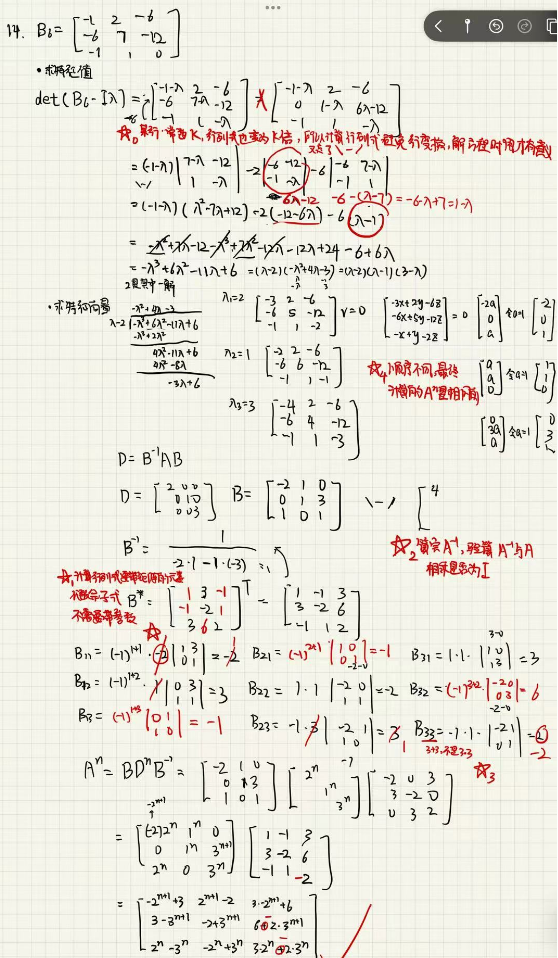 14. B₆ = [-1 2 -6; -6 7 -12; -1 1 0]
·求特征值
det(B₆-Iλ) = [-1-λ 2 -6; -6 7-λ -12; -1 1 -λ] [-1-λ 2 -6; 0 1-λ 6λ-12; -1 1 -λ]
= (-1-λ) |7-λ -12; 1 -λ| -2 |-6 -12; -1 -λ| -6 |-6 7-λ; -1 1|
6λ-12 -6-(λ-7) = -6-λ+7 = 1-λ
= (-1-λ) (λ²-7λ+12) -2 (-12-6λ) -6 (λ-1)
= -λ²+7λ-12-λ³+7λ²-12λ-12λ+24-6+6λ
= -λ³+6λ²-11λ+6 = (λ-2)(-λ²+4λ-3) = (λ-2)(λ-1)(3-λ)
2是其中一解
·求特征向量
-λ²+4λ-3
λ-2 -λ³+6λ²-11λ+6
-λ³+2λ²
4λ²-11λ+6
4λ²-8λ
-3λ+6
λ₁=2 [-3 2 -6; -6 5 -12; -1 1 -2] v=0 [-3x+2y-6z; -6x+5y-12z; -x+y-2z] = 0 [-2a; 0; a] 令a=1 [-2; 0; 1]
λ₂=1 [-2 2 -6; -6 6 -12; -1 1 -1] [a; a; 0] 令a=1 [1; 1; 0]
☆4 顺序不同,最终
计算的Aⁿ是相同的
λ₃=3 [-4 2 -6; -6 4 -12; -1 1 -3] [0; 3a; a] 令a=1 [0; 3; 1]
D = B⁻¹AB
D = [2 0 0; 0 1 0; 0 0 3] B = [-2 1 0; 0 1 3; 1 0 1] \-/ [4
☆2 算完A⁻¹,验算A⁻¹与A
相乘是否为I
B⁻¹ = 1 / -2·1-1·(-3) = 1
B* = [1 3 -1; -1 -2 1; 3 6 2]ᵀ = [1 -1 3; 3 -2 6; -1 1 2]
B₁₁ = (-1)¹⁺¹·-2 |1 3; 0 1| = -2 1 B₂₁ = (-1)²⁺¹ |1 0; 0 1| = -1 B₃₁ = 1·1·|1 0; 1 3| = 3
B₁₂ = (-1)¹⁺²·1 |0 3; 1 1| = 3 B₂₂ = 1·1 |-2 0; 1 1| = -2 B₃₂ = (-1)³⁺²·|-2 0; 0 3| = 6
B₁₃ = (-1)¹⁺³ |0 1; 1 0| = -1 B₂₃ = -1·3 |-2 1; 1 0| = 3 1 B₃₃ = -1·1·|-2 1; 0 1| = 2 -2
3+3,不是3·3
☆3
Aⁿ = BDⁿB⁻¹ = [-2 1 0; 0 1 3; 1 0 1] [2ⁿ 1ⁿ 3ⁿ] [-2 0 3; 3 -2 0; 0 3 2]
= [(-2)2ⁿ 1ⁿ 0; 0 1ⁿ 3ⁿ⁺¹; 2ⁿ 0 3ⁿ] [1 -1 3; 3 -2 6; -1 1 -2]
= [-2ⁿ⁺¹+3 2ⁿ⁺¹-2 -3·2ⁿ⁺¹+6; 3-3ⁿ⁺¹ -2+3ⁿ⁺¹ 6-2·3ⁿ⁺¹; 2ⁿ-3ⁿ -2ⁿ+3ⁿ 3·2ⁿ-2·3ⁿ]